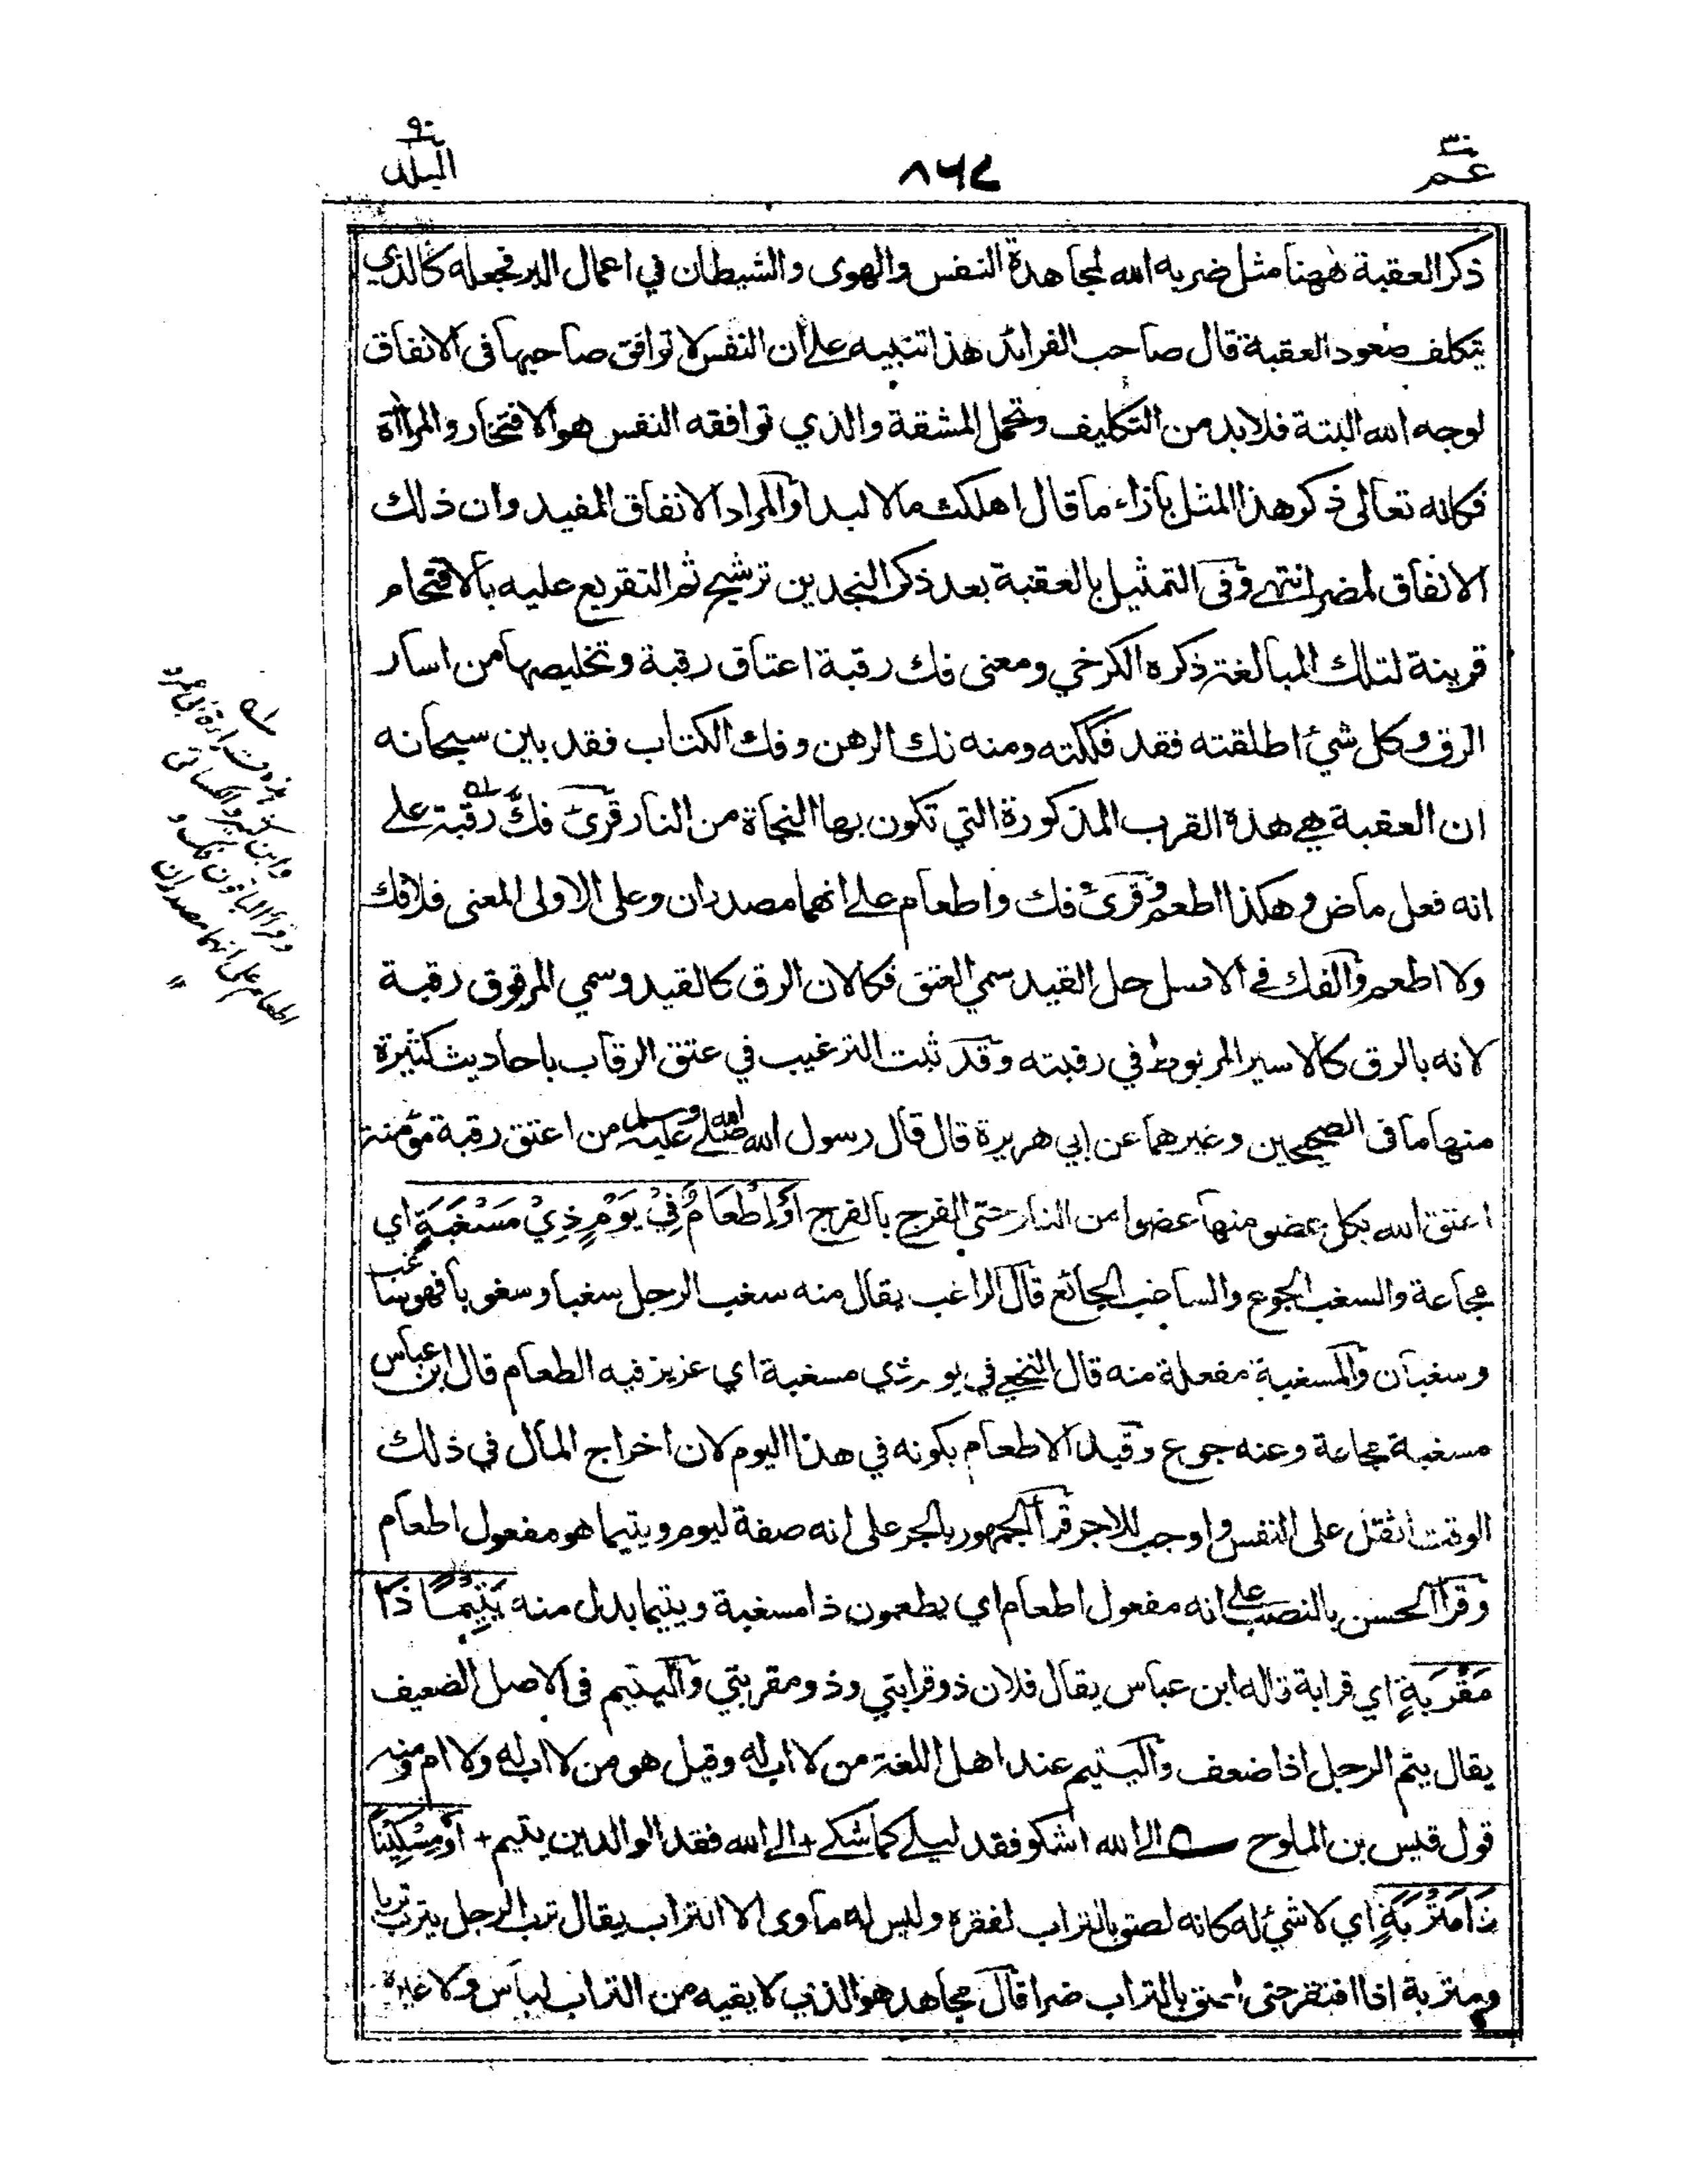 عم ٣٠
٨٦٧
البلد ٩٠
ذكر العقبة ههنا مثل ضربه الله لمجاهدة النفس والهوى والشيطان في اعمال البر فجعله كالذي
يتكلف صعود العقبة قال صاحب الفرائد هذا تنبيه على أن النفس لا توافق صاحبها فى الانفاق
لوجه الله البتة فلا بد من التكليف وتحمل المشقة والذي توافقه النفس هو الافتخار والمراأة
فكانه تعالى ذكر هذا المثل بازاء ما قال اهلكت مالا لبدا والمراد الانفاق المفيد وان ذلك
الانفاق لمضر انتهى وفى التمثيل بالعقبة بعد ذكر النجدين ترشيح ثم التقريع عليه بالاقتحام
قرينة لتلك المبالغة ذكره الكرخي ومعنى فك رقبة اعتاق رقبة وتخليصها من اسار
الرق وكل شئ اطلقته فقد فككته ومنه فك الرهن وفك الكتاب فقد بين سبحانه
ان العقبة هي هذه القرب المذكورة التي تكون بها النجاة من النار قرئ فكّ رقبة على
انه فعل ماض وهكذا اطعم وقرئ فك واطعام على انهما مصدران وعلى الاولى المعنى فلا فك
ولا اطعم والفك في الاصل حل القيد سمي العتق فكا لان الرق كالقيد وسمي المرقوق رقبة
لانه بالرق كالاسير المربوط في رقبته وقد ثبت الترغيب في عتق الرقاب باحاديث كثيرة
منها ما فى الصحيحين وغيرهما عن ابي هريرة قال قال رسول الله صلى الله عليه وسلم من اعتق رقبة مؤمنة
اعتق الله بكل عضو منها عضوا من النار حتى الفرج بالفرج أَوْ إِطْعَامٌ فِيْ يَوْمٍ ذِيْ مَسْغَبَةٍ اي
مجاعة والسغب الجوع والساغب الجائع قال الراغب يقال منه سغب الرجل سغبا وسغوبا فهو ساغب
وسغبان والمسغبة مفعلة منه قال النخعي في يوم ذي مسغبة اي عزيز فيه الطعام قال ابن عباس
مسغبة مجاعة وعنه جوع وقيد الاطعام بكونه في هذا اليوم لان اخراج المال في ذلك
الوقت اثقل على النفس واوجب للاجر قرأ الجمهور بالجر على انه صفة ليوم ويتيما هو مفعول اطعام
وقرأ الحسن بالنصب على انه مفعول اطعام اي يطعمون ذا مسغبة ويتيما بدل منه يَتِيْمًا ذَا
مَقْرَبَةٍ اي قرابة قاله ابن عباس يقال فلان ذو قرابتي وذو مقربتي واليتيم فى الاصل الضعيف
يقال يتم الرجل اذا ضعف واليتيم عند اهل اللغة من لا اب له وقيل هو من لا اب له ولا ام ومنه
قول قيس بن الملوح الى الله اشكو فقد ليلى كما شكى + الى الله فقد الوالدين يتيم + أَوْ مِسْكِيْنًا
ذَا مَتْرَبَةٍ اي لا شئ له كانه لصق بالتراب لفقره وليس له مأوى الا التراب يقال ترب الرجل يترب تربا
ومتربة اذا افتقر حتى لصق بالتراب ضرا قال مجاهد هو الذي لا يقيه من التراب لباس ولا غيره
وابن كثير والكسائي
وقرأ الباقون فك و
اطعام على انهما مصدران